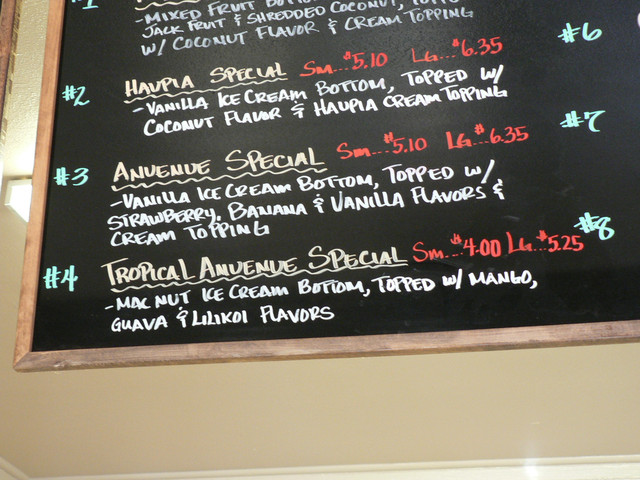 #1
- MIXED FRUIT BOTTOM,
JACK FRUIT & SHREDDED COCONUT,
W/ COCONUT FLAVOR & CREAM TOPPING
#6
#2 HAUPIA SPECIAL Sm...$5.10 LG...$6.35
- VANILLA ICE CREAM BOTTOM, TOPPED W/
COCONUT FLAVOR & HAUPIA CREAM TOPPING
#7
#3 ANUENUE SPECIAL Sm....$5.10 LG...$6.35
- VANILLA ICE CREAM BOTTOM, TOPPED W/
STRAWBERRY, BANANA & VANILLA FLAVORS &
CREAM TOPPING
#8
#4 TROPICAL ANUENUE SPECIAL Sm...$4.00 LG..$5.25
- MAC NUT ICE CREAM BOTTOM, TOPPED W/ MANGO,
GUAVA & LILIKOI FLAVORS